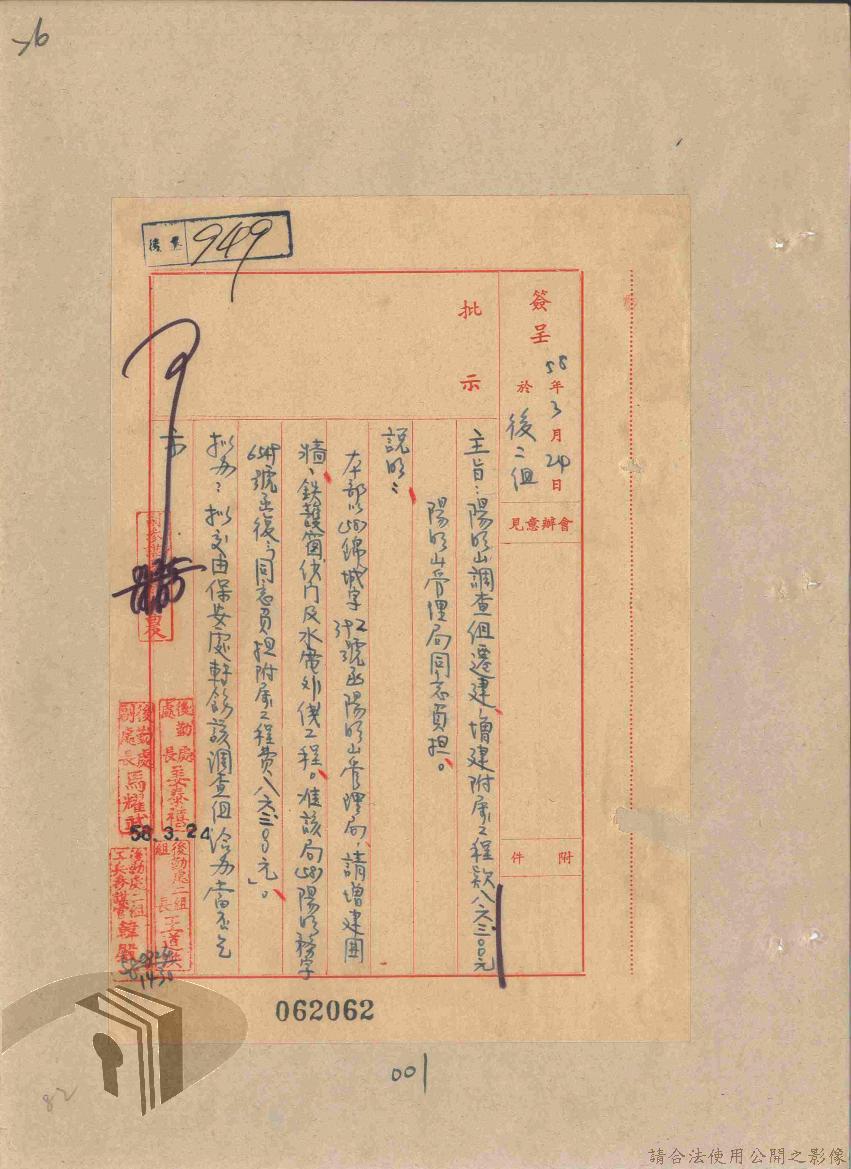 76
後業 949
簽呈
58年3月24日
於後二組
會辦意見
附件
批示
主旨：陽明山調查組遷建、增建附屬工程款八六三〇〇元
陽明山管理局同意負担。
說明：
本部以(58)錦城字392號函陽明山管理局，請增建圍
牆、鉄護窗伐門及水電外綫工程。准該局(58)陽明務字
號函復「同意負担附屬工程費八六三〇〇元」。
拟办：拟交由保安處轉飭該調查組洽办當否乞
示
後勤處處長姜泰禧
後勤處副處長馬耀武
58.3.24
後勤處二組組長王道
後勤處二組工兵參謀官韓毅
0324
1430
062062
001
82
請合法使用公開之影像